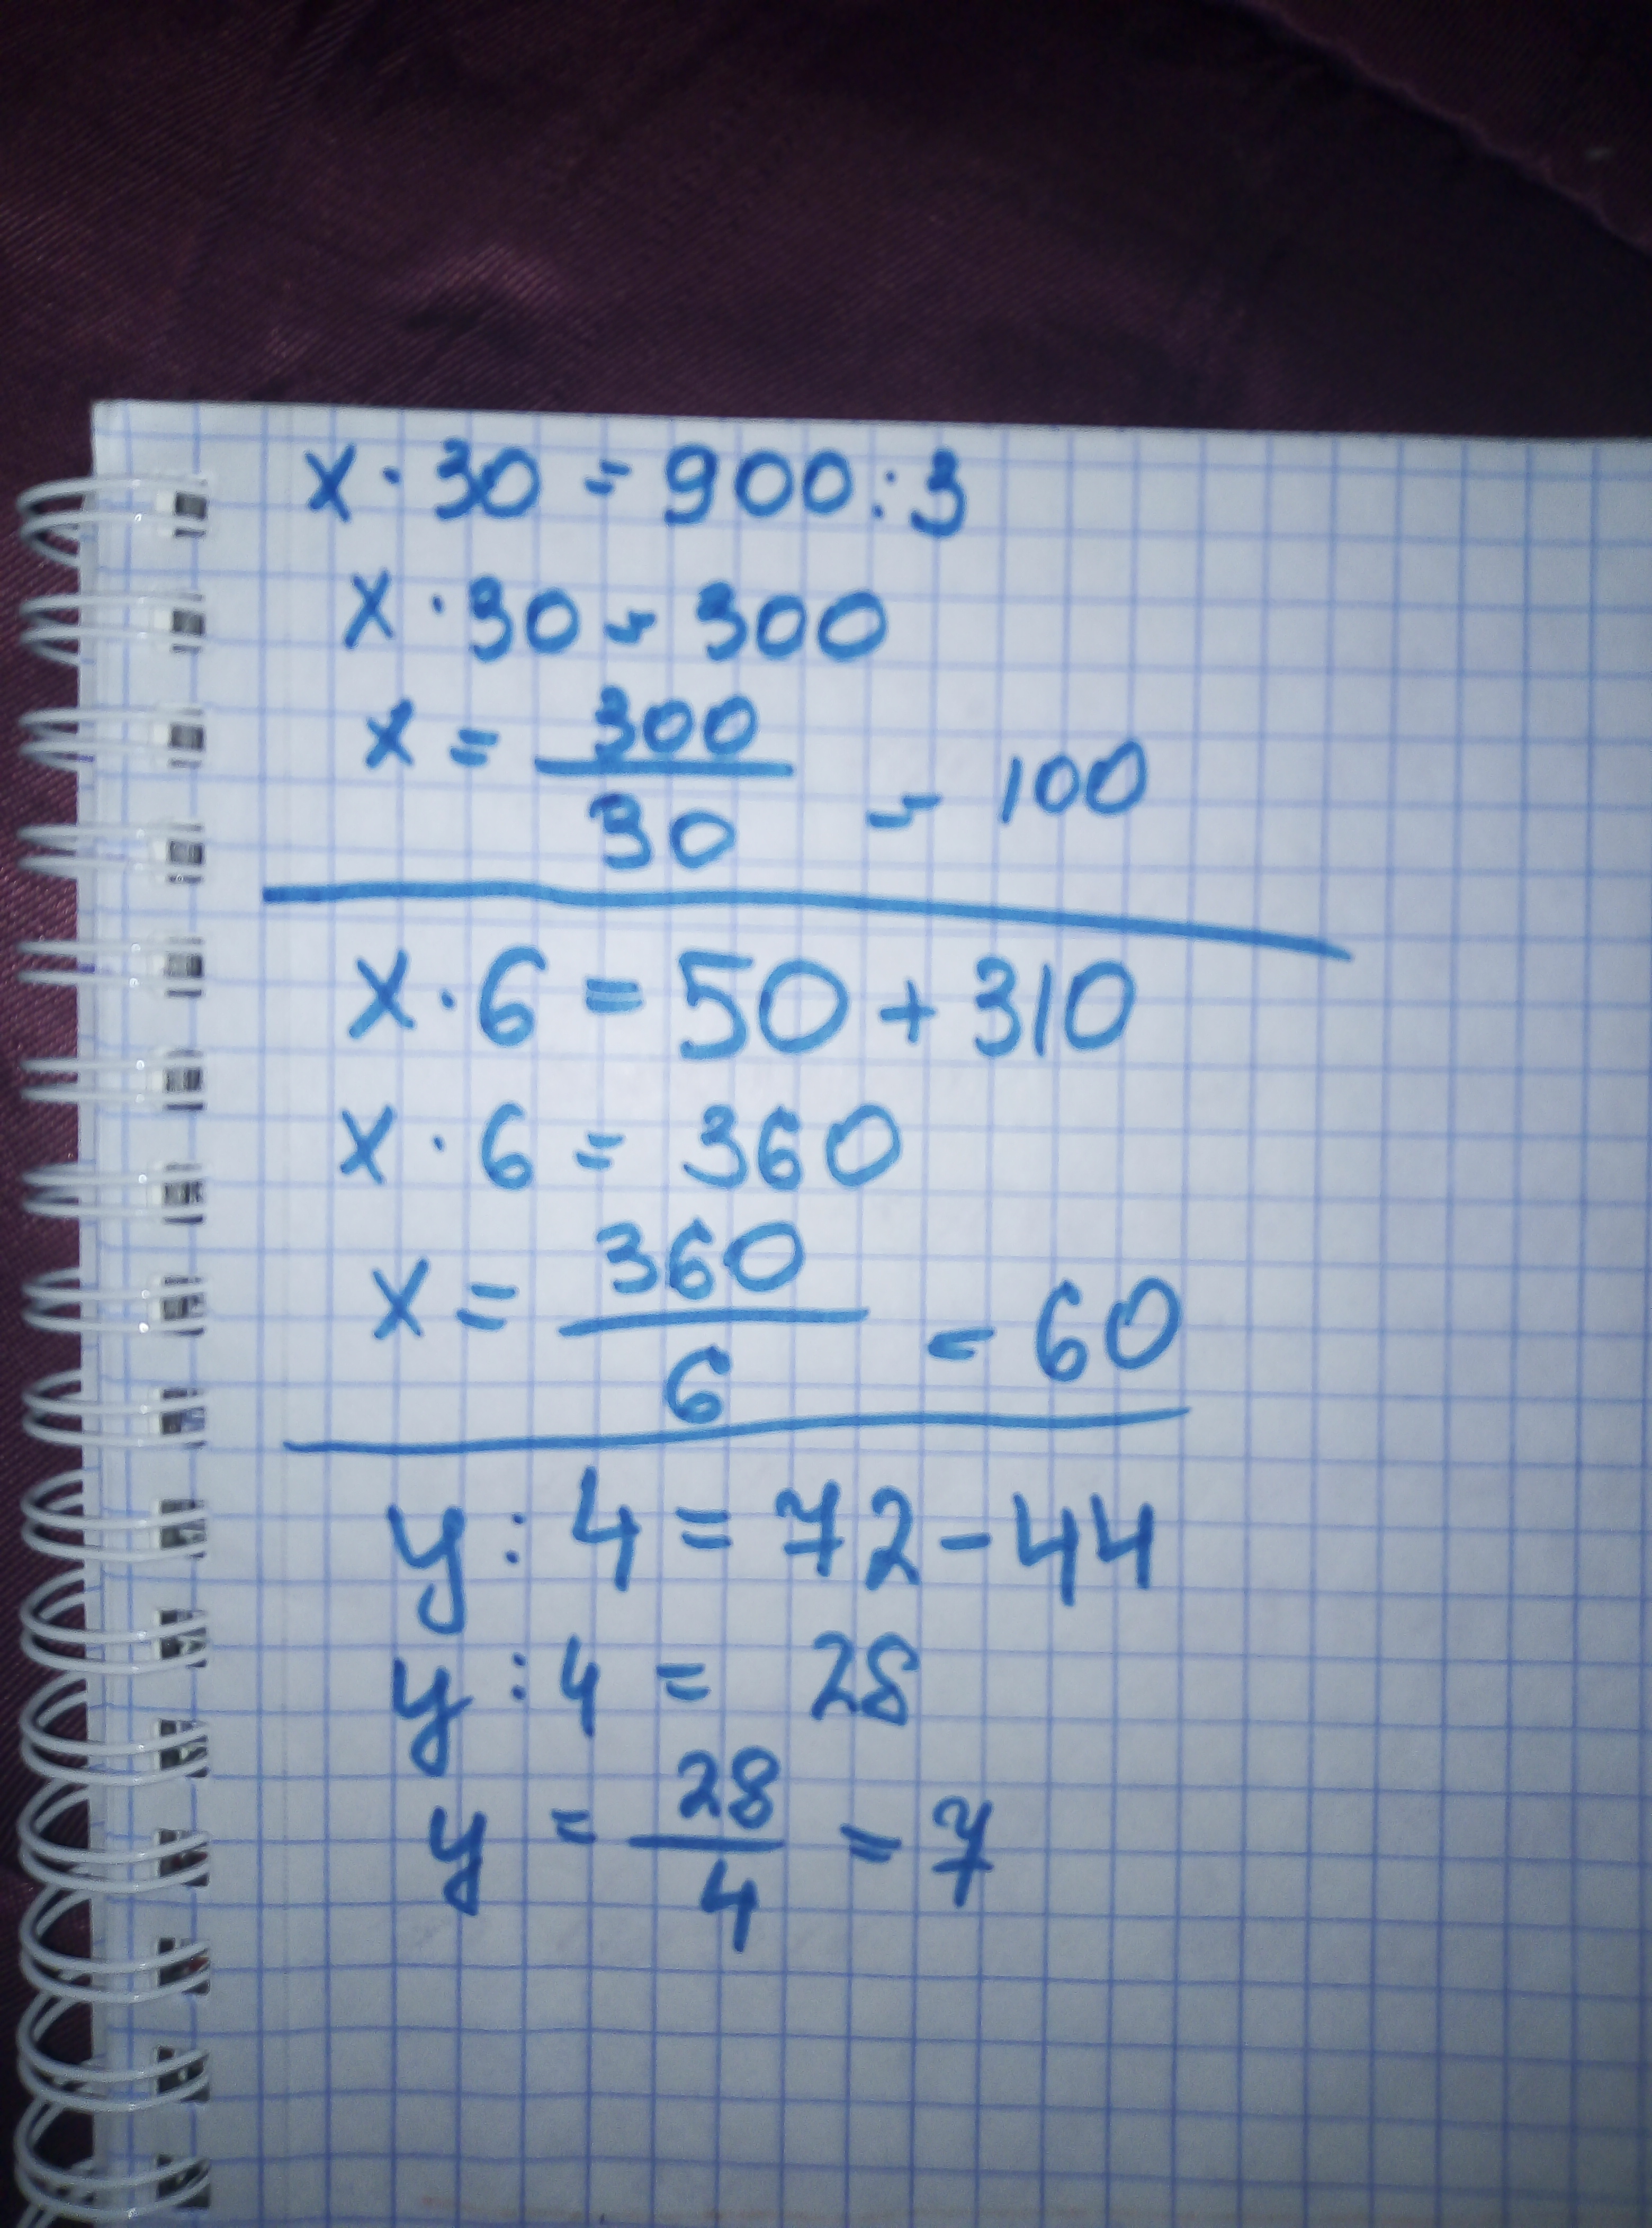 x · 30 = 900 : 3
x · 30 = 300
x = 300/30 = 100
x · 6 = 50 + 310
x · 6 = 360
x = 360/6 = 60
y : 4 = 72 - 44
y : 4 = 28
y = 28/4 = 7